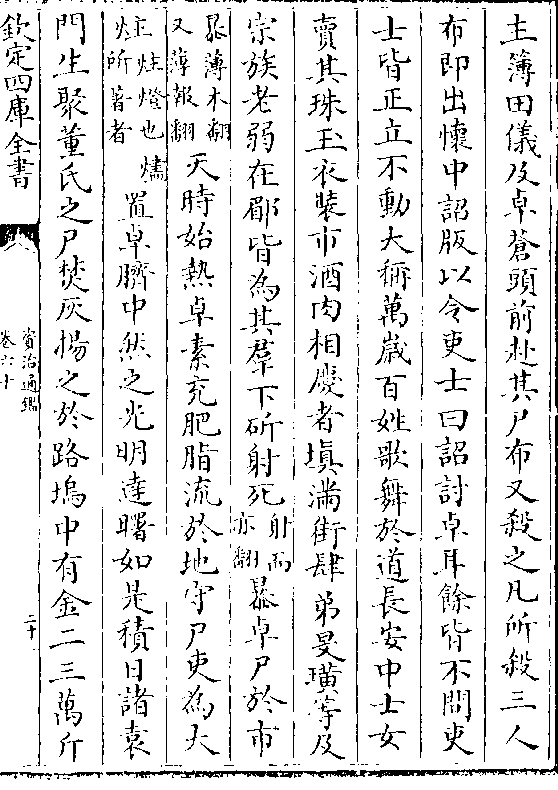 主簿田儀及卓蒼頭前赴其尸布又殺之凡所殺三人
布即出懷中詔版以令吏士曰詔討卓耳餘皆不問吏
士皆正立不動大稱萬歲百姓歌舞於道長安中士女
賣其珠玉衣裝市酒肉相慶者填滿街肆弟旻璜等及
宗族老弱在郿皆為其羣下斫射死射而亦翻暴卓尸於市
暴薄木翻又薄報翻天時始熱卓素充肥脂流於地守尸吏為大
炷炷燈也燼所著者置卓臍中然之光明達曙如是積日諸袁
門生聚董氏之尸焚灰揚之於路塢中有金二三萬斤
欽定四庫全書
資治通鑑
卷六十
二十